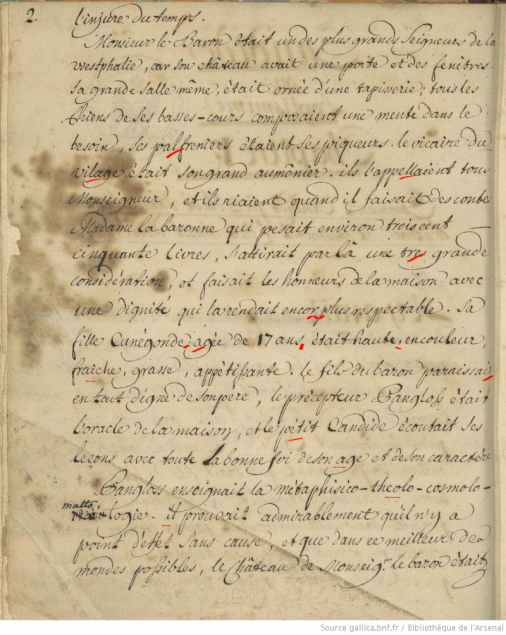 2.
l'injure du temps.
Monsieur le Baron était un des plus grands Seigneurs de la
Westphalie, car son château avait une porte et des fenêtres.
sa grande Salle même, était ornée d'une tapisserie; tous les
Chiens de ses basses-cours composaient une meute dans le
besoin, ses palfreniers étaient ses piqueurs. le vicaire du
vilage était son grand aumônier. ils l'appellaient tous
Monseigneur, et ils riaient quand il faisait des conte
Madame la baronne qui pesait environ trois cent
cinquante livres, s'attirait par là une tres grande
considération, et faisait les honneurs de la maison avec
une dignité qui la rendait encor plus respectable. Sa
fille Cunégonde agée de 17 ans, était haute, en couleur,
fraiche, grasse, appétissante. le fils du baron paraissait
en tout digne de son père, le précepteur Pangloss était
l'oracle de la maison, et le pétit Candide écoutait ses
leçons avec toute la bonne foi de son age et de son caractère
Pangloss enseignait la métaphisico-theolo-cosmolo-
matto
logie. it prouvait admirablement qu'il n'y a
point d'effet sans cause, et que dans ce meilleur des
mondes possibles, le Château de Monseigr. le baron était
Source gallica.bnf.fr / Bibliothèque de l'Arsenal